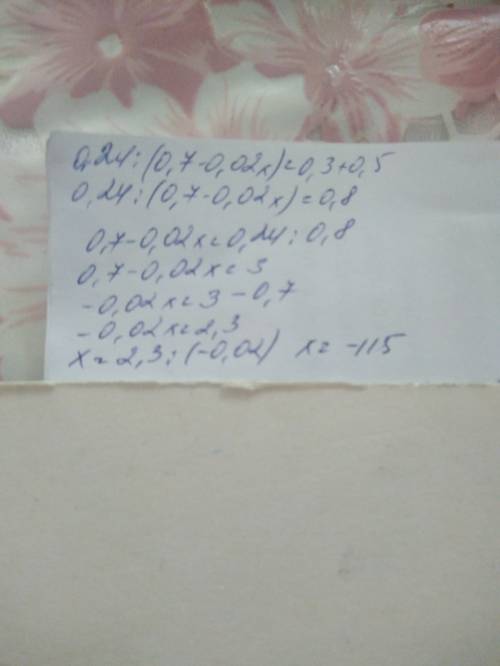 0,24:(0,7-0,02x)=0,3+0,5
0,24:(0,7-0,02x)=0,8
0,7-0,02x=0,24:0,8
0,7-0,02x=3
-0,02x=3-0,7
-0,02x=2,3
x=2,3:(-0,02) x=-115